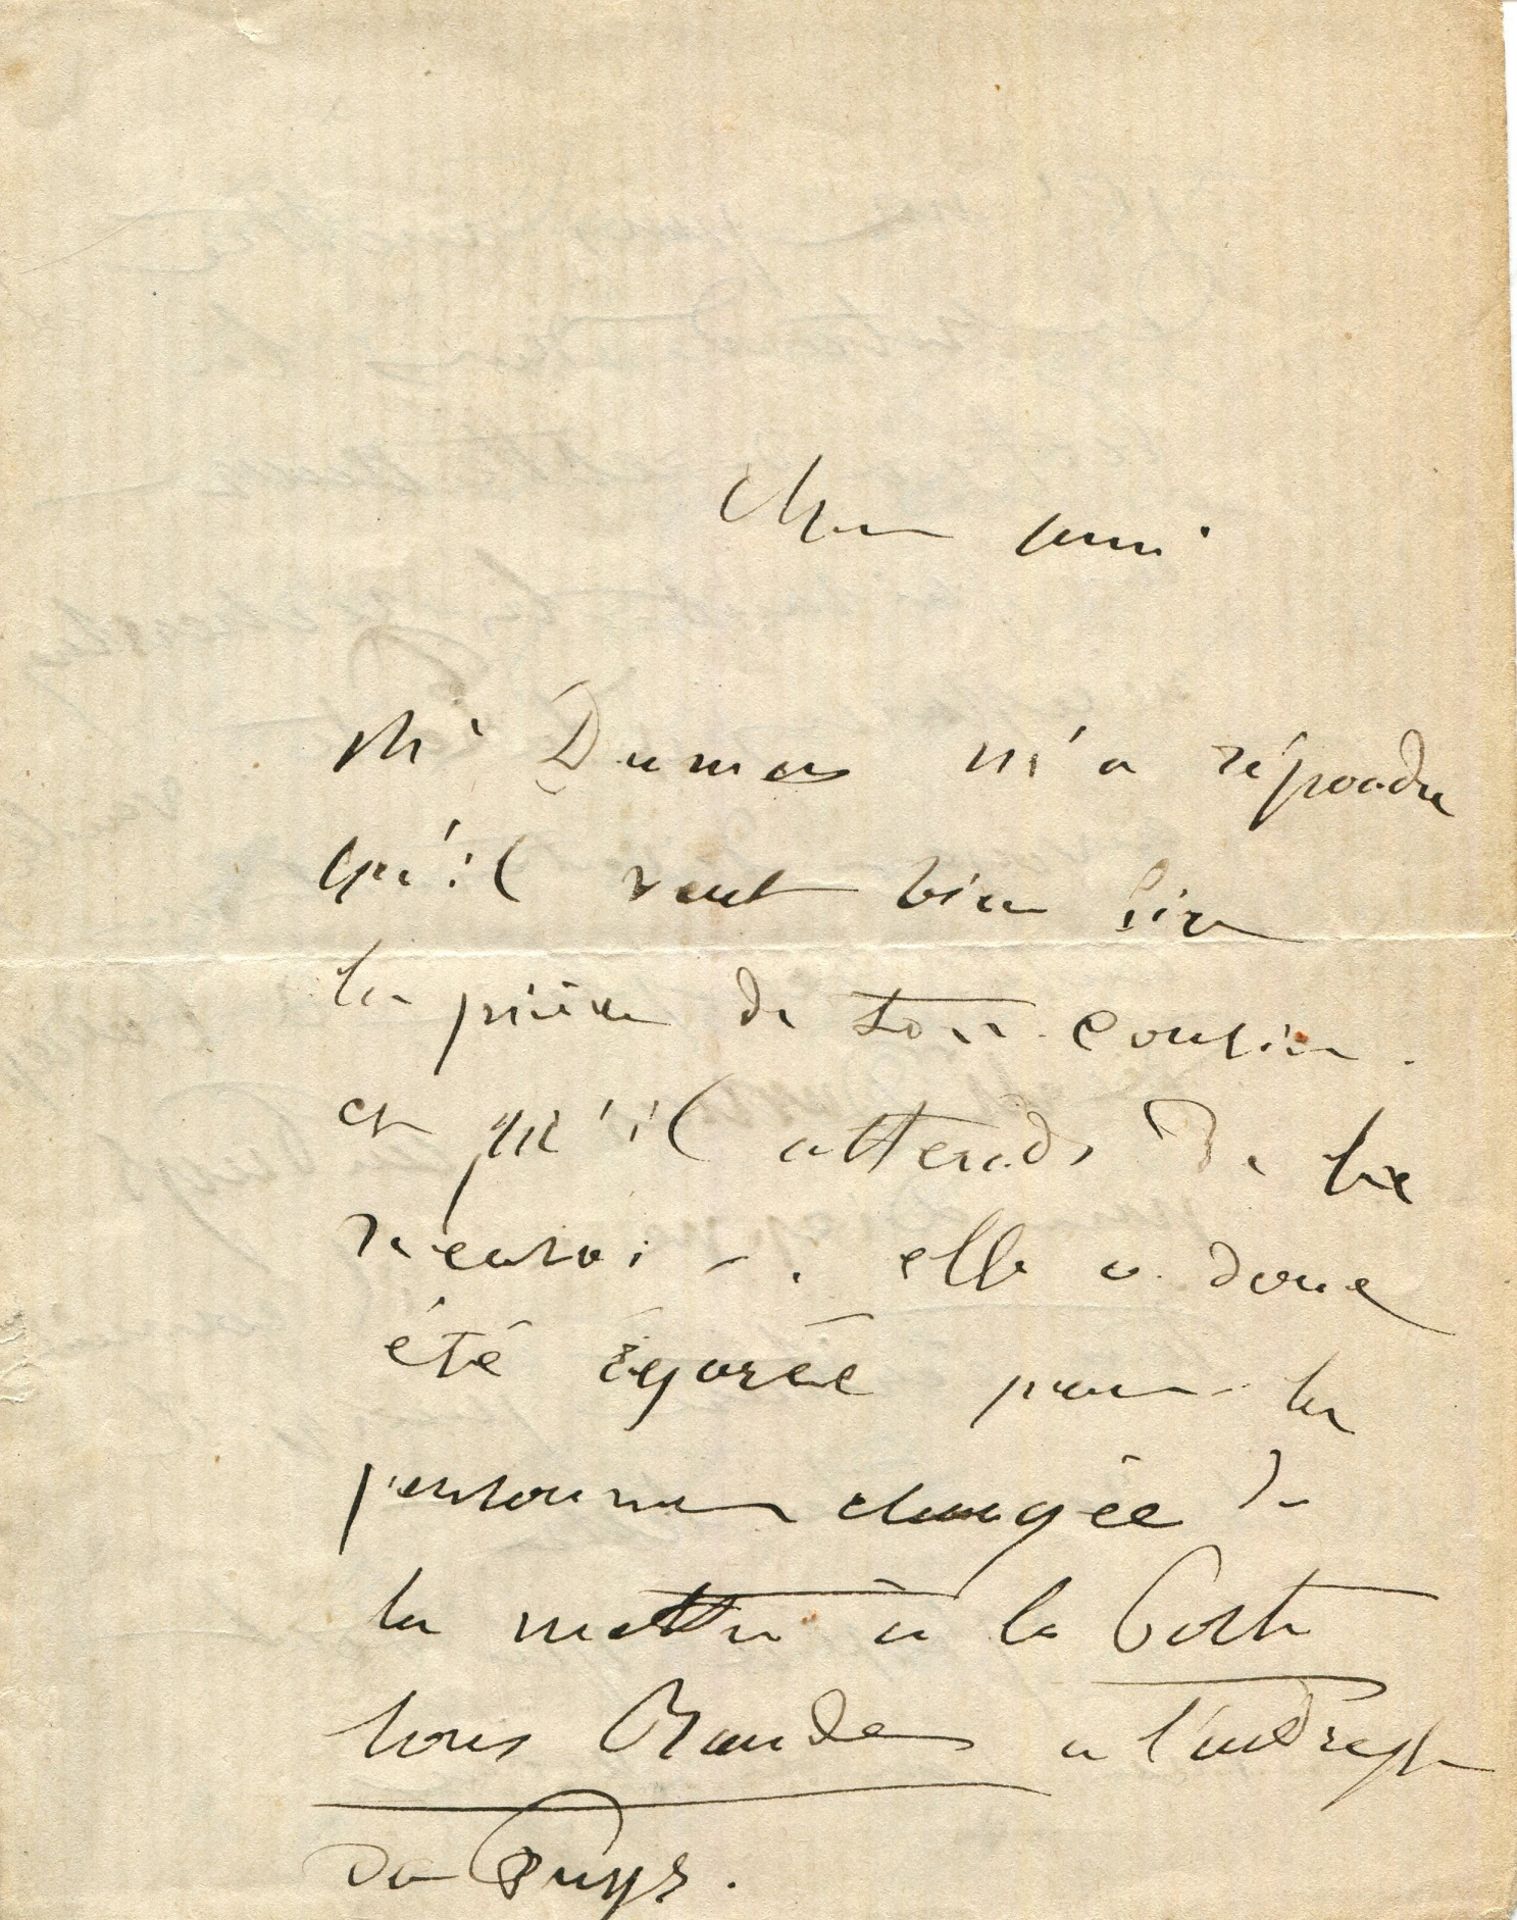 Cher ami
Mr Dumas m'a répondu
qu'il veut bien lire
la pièce de ton cousin.
et qu'il attends de la
recevoir. elle a donc
été égarée par la
personne chargée de
la mettre à la Poste
sous Bande a l'adresse
de Puys.